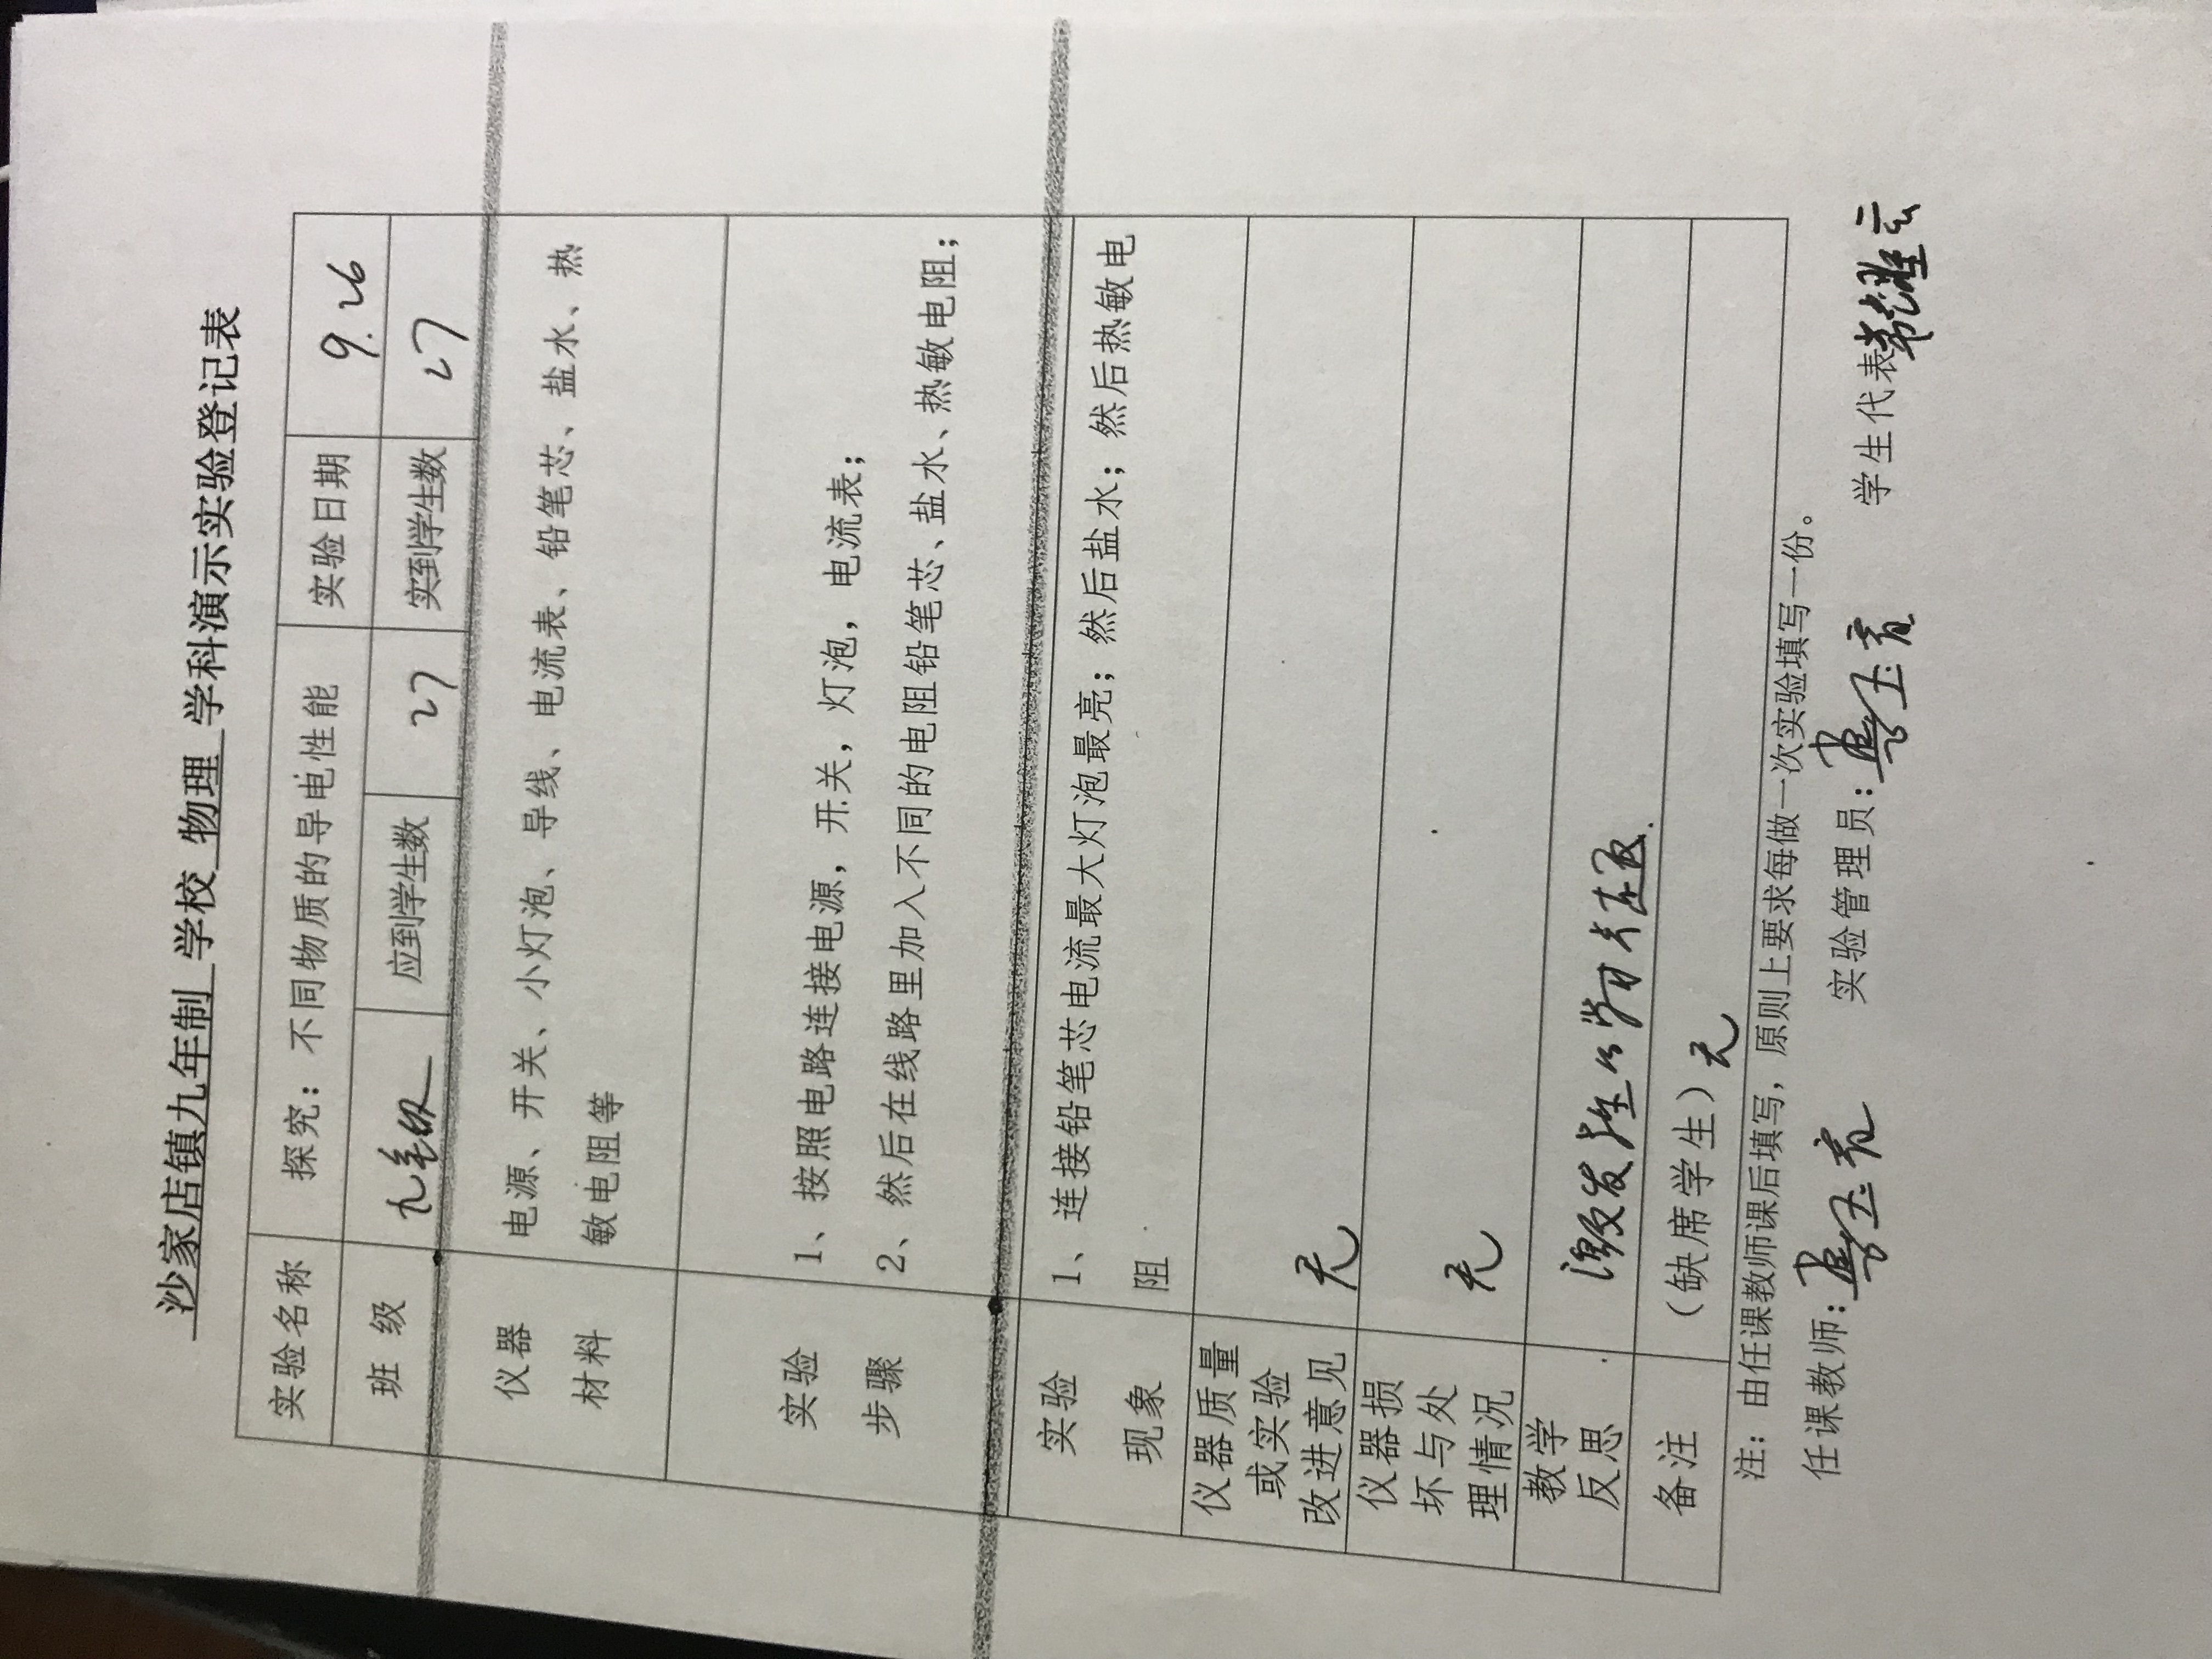 沙家店镇九年制 学校 物理 学科演示实验登记表
实验名称 探究：不同物质的导电性能 实验日期 9.26
班 级 九年级 应到学生数 27 实到学生数 27
仪器 电源、开关、小灯泡、导线、电流表、铅笔芯、盐水、热
材料 敏电阻等
实验 1、按照电路连接电源，开关，灯泡，电流表；
步骤 2、然后在线路里加入不同的电阻铅笔芯、盐水、热敏电阻；
实验 1、连接铅笔芯电流最大灯泡最亮；然后盐水；然后热敏电
现象 阻
仪器质量
或实验
改进意见 无
仪器损
坏与处
理情况 无
教学
反思 激发学生的学习兴趣.
备注 （缺席学生）无
注：由任课教师课后填写，原则上要求每做一次实验填写一份。
任课教师: 实验管理员: 学生代表